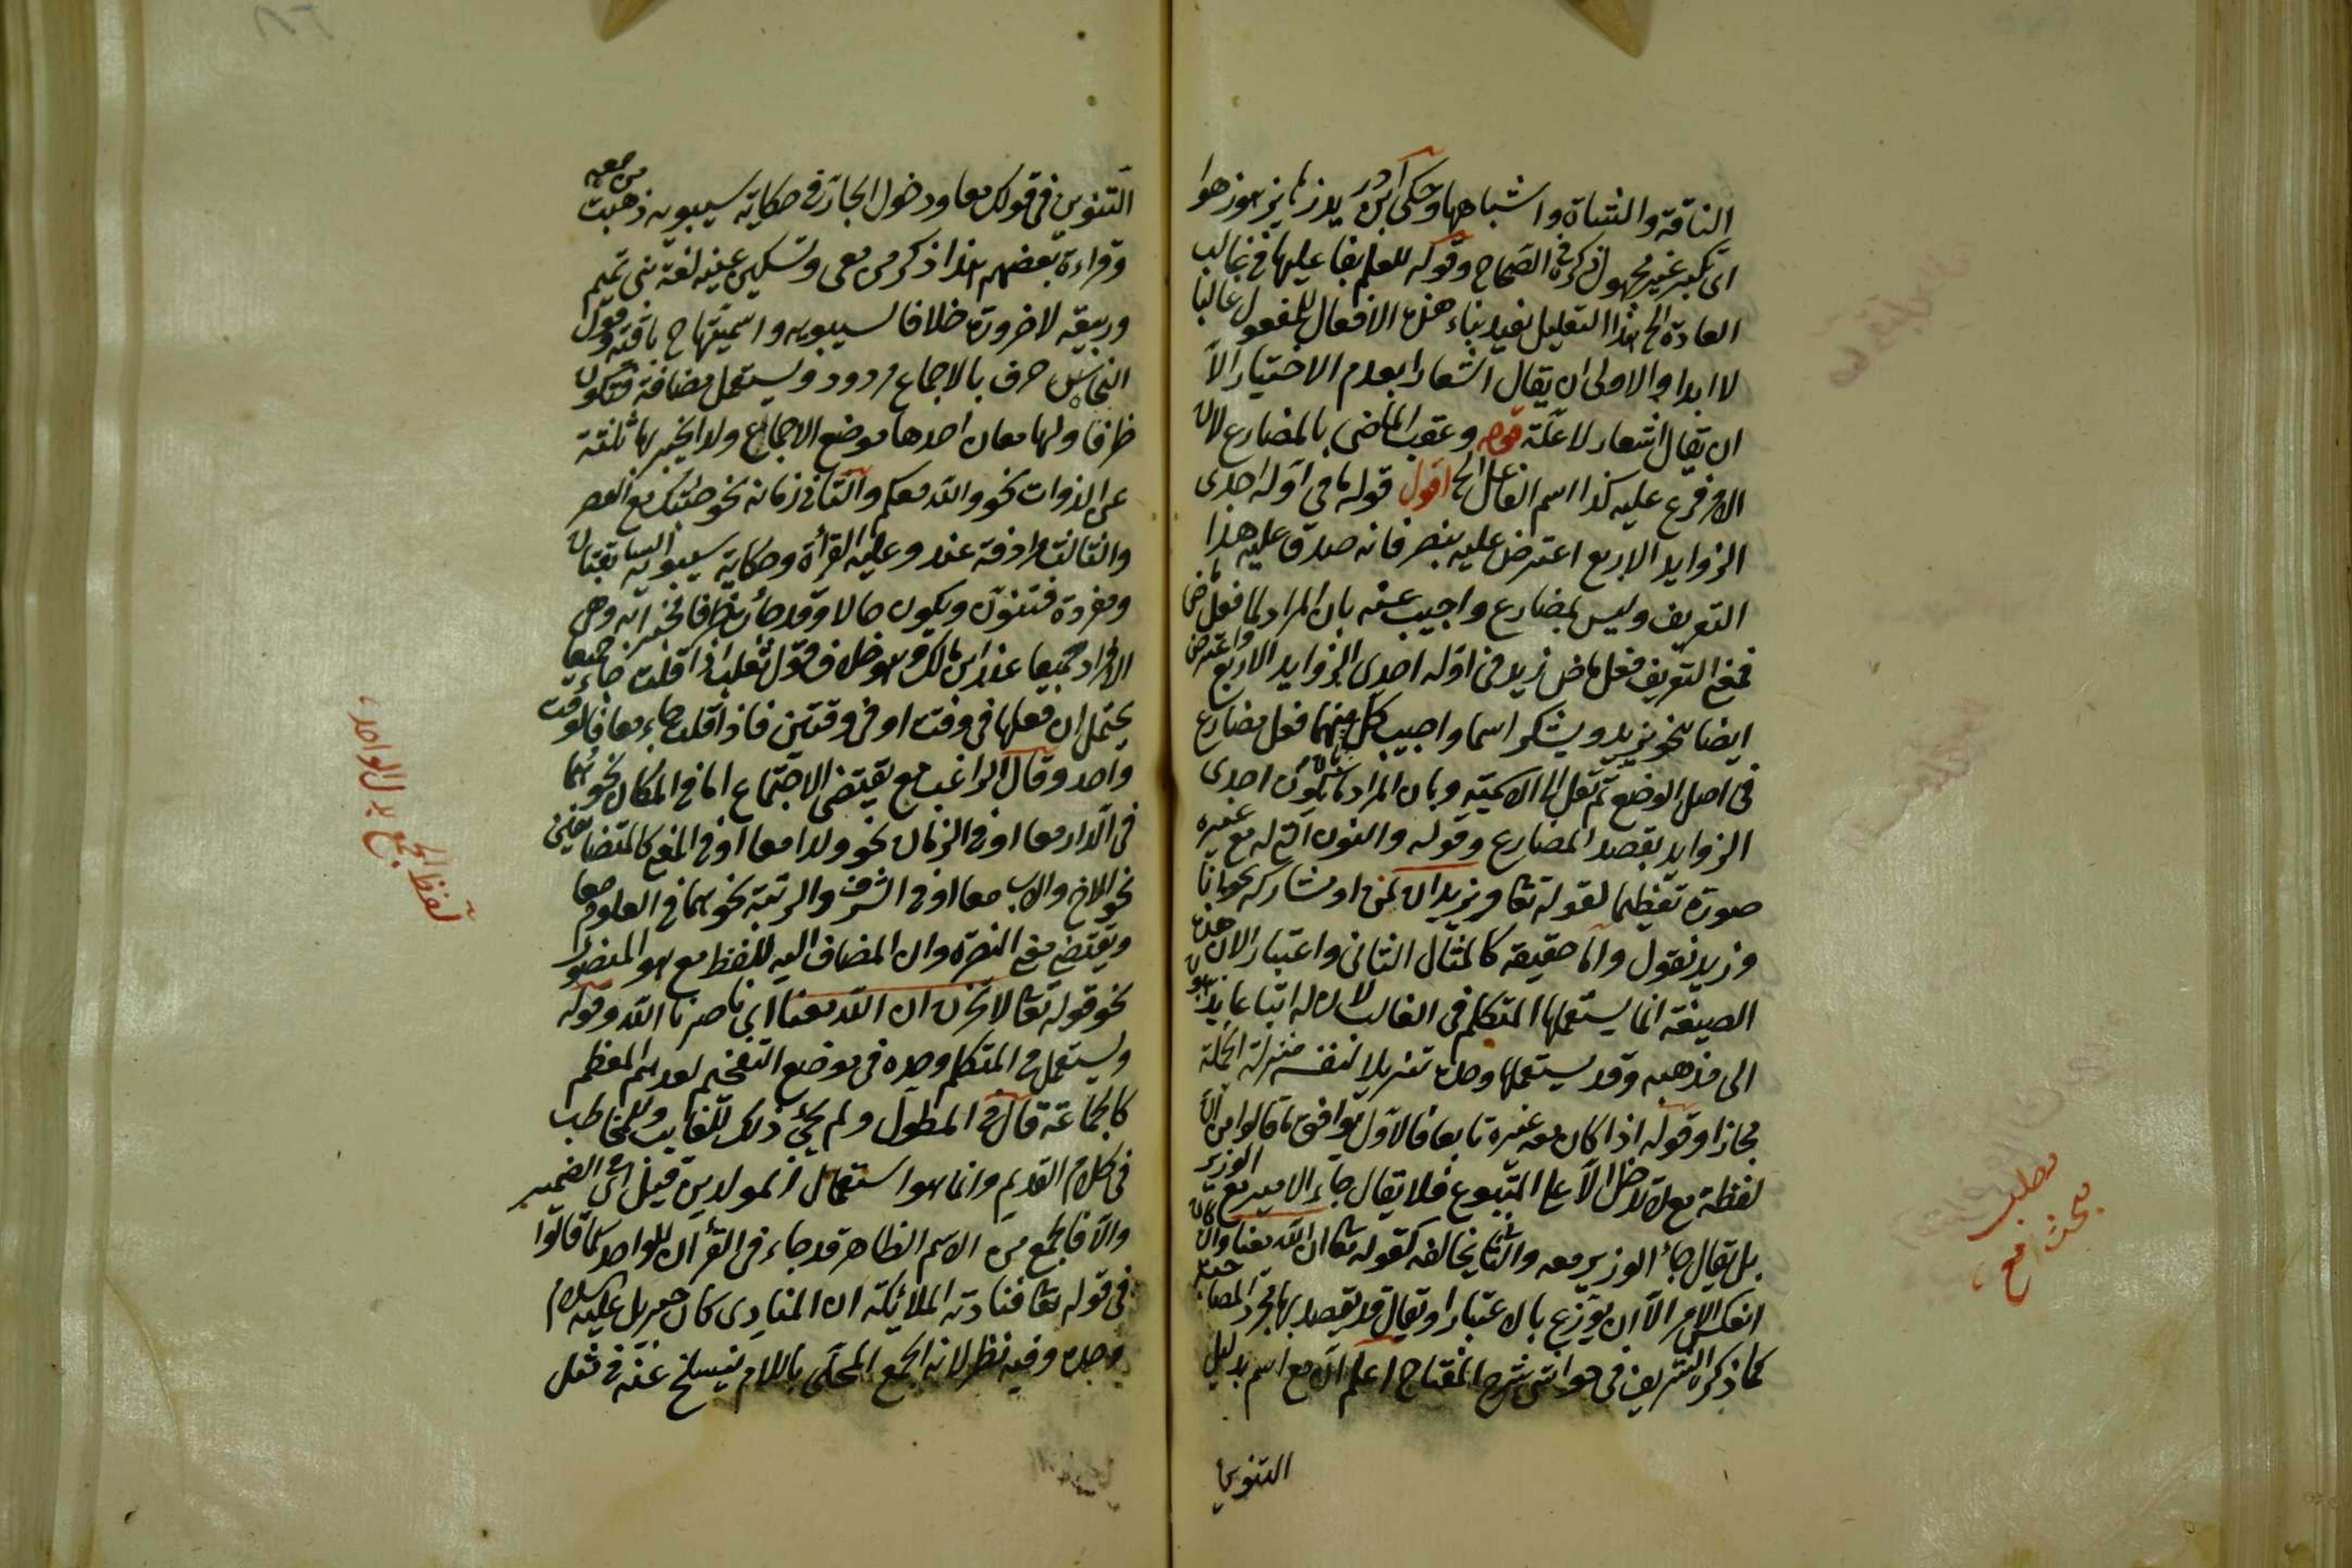 الناقة والشاة واشباهها وحكى ابن دريد زها يزهو زهوا
اى تكبر غير مجهول ذكره فى الصحاح وقوله للعلم بفاعليها فى غالب
العادة الخ هذا التعليل يفيد بناء هذه الافعال للمفعول غالبا
لا ابدا والاولى ان يقال اشعارا بعدم الاختيار الا
ان يقال اشعار لا علة قوله وعقب الماضى بالمضارع لان
الامر فرع عليه كذا اسم الفاعل الخ اقول قوله ما فى اوله احدى
الزوايد الاربع اعترض عليه بنصر فانه صدق عليه هذا
التعريف وليس بمضارع واجيب عنه بان المراد بما فعل ماض
فمعنى التعريف فعل ماض زيد فى اوله احدى الزوايد الاربع واعترض
ايضا بنحو يزيد ويشكر اسما واجيب كل منهما فعل مضارع
فى اصل الوضع ثم نقل الى الاسمية وبان المراد ما يكون احدى
الزوايد بقصد المضارع وقوله والنون له مع غيره
صورة تعظيما لقوله تعا ونريد ان نمن او مشاركه نحو انا
وزيد نقول واما حقيقة كالمثال الثانى واعتبار الاان هذه
الصيغة انما يستعملها المتكلم فى الغالب لان له اتباعا يذهبون
الى مذهبه وقد يستعملها وحده تنزيلا لنفسه منزلة الجملة
مجازا وقوله اذا كان معه غيره تابعا فالاول يوافق ما قالوا من ان
لفظة مع لا تدخل الا على المتبوع فلا يقال جاء الامير مع الوزير
بل يقال جاء الوزير معه والثانى يخالفه كقوله تعا ان الله معنا وان كان
انعكس الامر الا ان يوزع بالاعتبار او يقال قد يقصد بها مجرد المصاحبة
كما ذكره الشريف فى حواشى شرح المفتاح اعلم ان مع اسم بدليل
التنوين
مطلب
بحث مع
التنوين فى قولك معا ودخول الجار فى حكاية سيبويه ذهبت من معه
وقراءة بعضهم هذا ذكر من معى وتسكين عينه لغة بنى تميم
وربيعة لا ضرورة خلافا لسيبويه واسميتها ح باقية وقول
النحاس حرف بالاجماع مردود ويستعمل مضافة فتكون
ظرفا ولها معان احدها موضع الاجماع ولذا يخبر بها ثلثة
عن الذوات نحو والله معكم والثانى زمانه نحو جئتك مع العصر
والثالث مرادفة عند وعليه القرأة وحكاية سيبويه السابقتان
ومفردة فتنون ويكون حالا وقد جاءت ظرفا مخبرا به وهى
الافراد جميعا عند ابن مالك وهو خلاف قول ثعلب اذا قلت جاء جميعا
يحتمل ان فعلها فى وقت او فى وقتين فاذا قلت جاء معا فالوقت
واحد وقال الراغب مع يقتضى الاجتماع اما فى المكان نحو هما
فى الدار معا او فى الزمان نحو ولدا معا او فى المعنى كالمتضايفين
نحو الاخ والاب معا او فى الشرف والرتبة نحو هما فى العلو معا
ويقتضى معنى النصرة وان المضاف اليه للفظ مع هو المنصور
نحو قوله تعا لا تحزن ان الله معنا اى ناصرنا الله وقوله
ويستعمل فى المتكلم وحده فى موضع التفخيم لعدهم المعظم
كالجماعة قال فى المطول ولم يجئ ذلك للغايب وللمخاطب
فى كلام القديم وانما هو استعمال المولدين قيل اى الضمير
والا فالجمع من الاسم الظاهر قد جاء فى القرآن للواحد كما قالوا
فى قوله تعا فنادته الملائكة ان المنادى كان جبريل عليه السلام
وحده وفيه نظر لانه الجمع المحلى باللام ينسلخ عنه فى مثل
لفظ الجمع للواحد